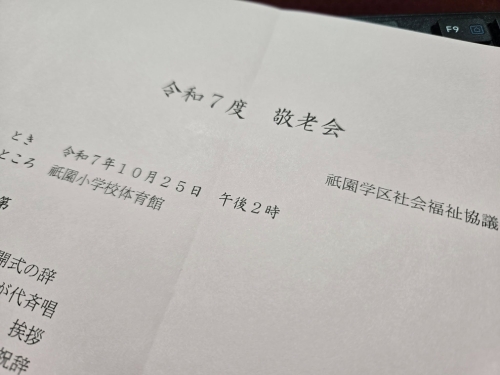 F9
令和7度 敬老会
祇園学区社会福祉協議
とき 令和7年10月25日 午後2時
ところ 祇園小学校体育館
第
開式の辞
が代斉唱
挨拶
祝辞